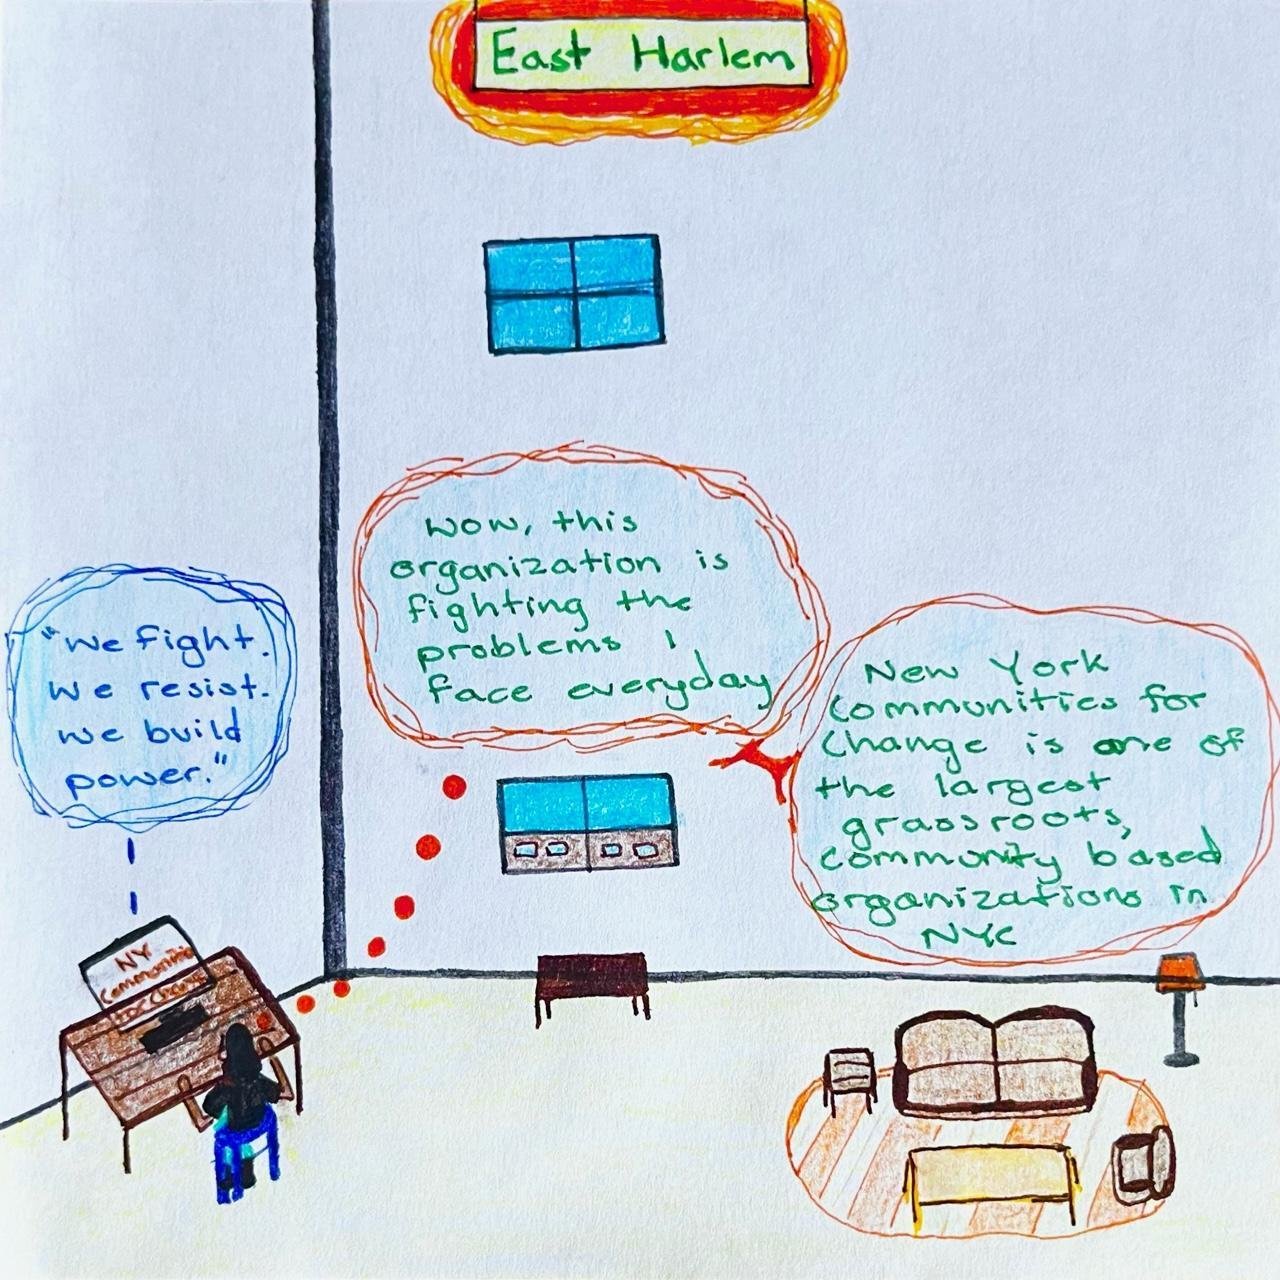 East Harlem
wow, this
organization is
fighting the
problems I
face everyday
"We fight.
We resist.
we build
power."
New York
Communities for
Change is one of
the largest
grassroots,
community based
organizations in
NYC
NY
Communities
for Change